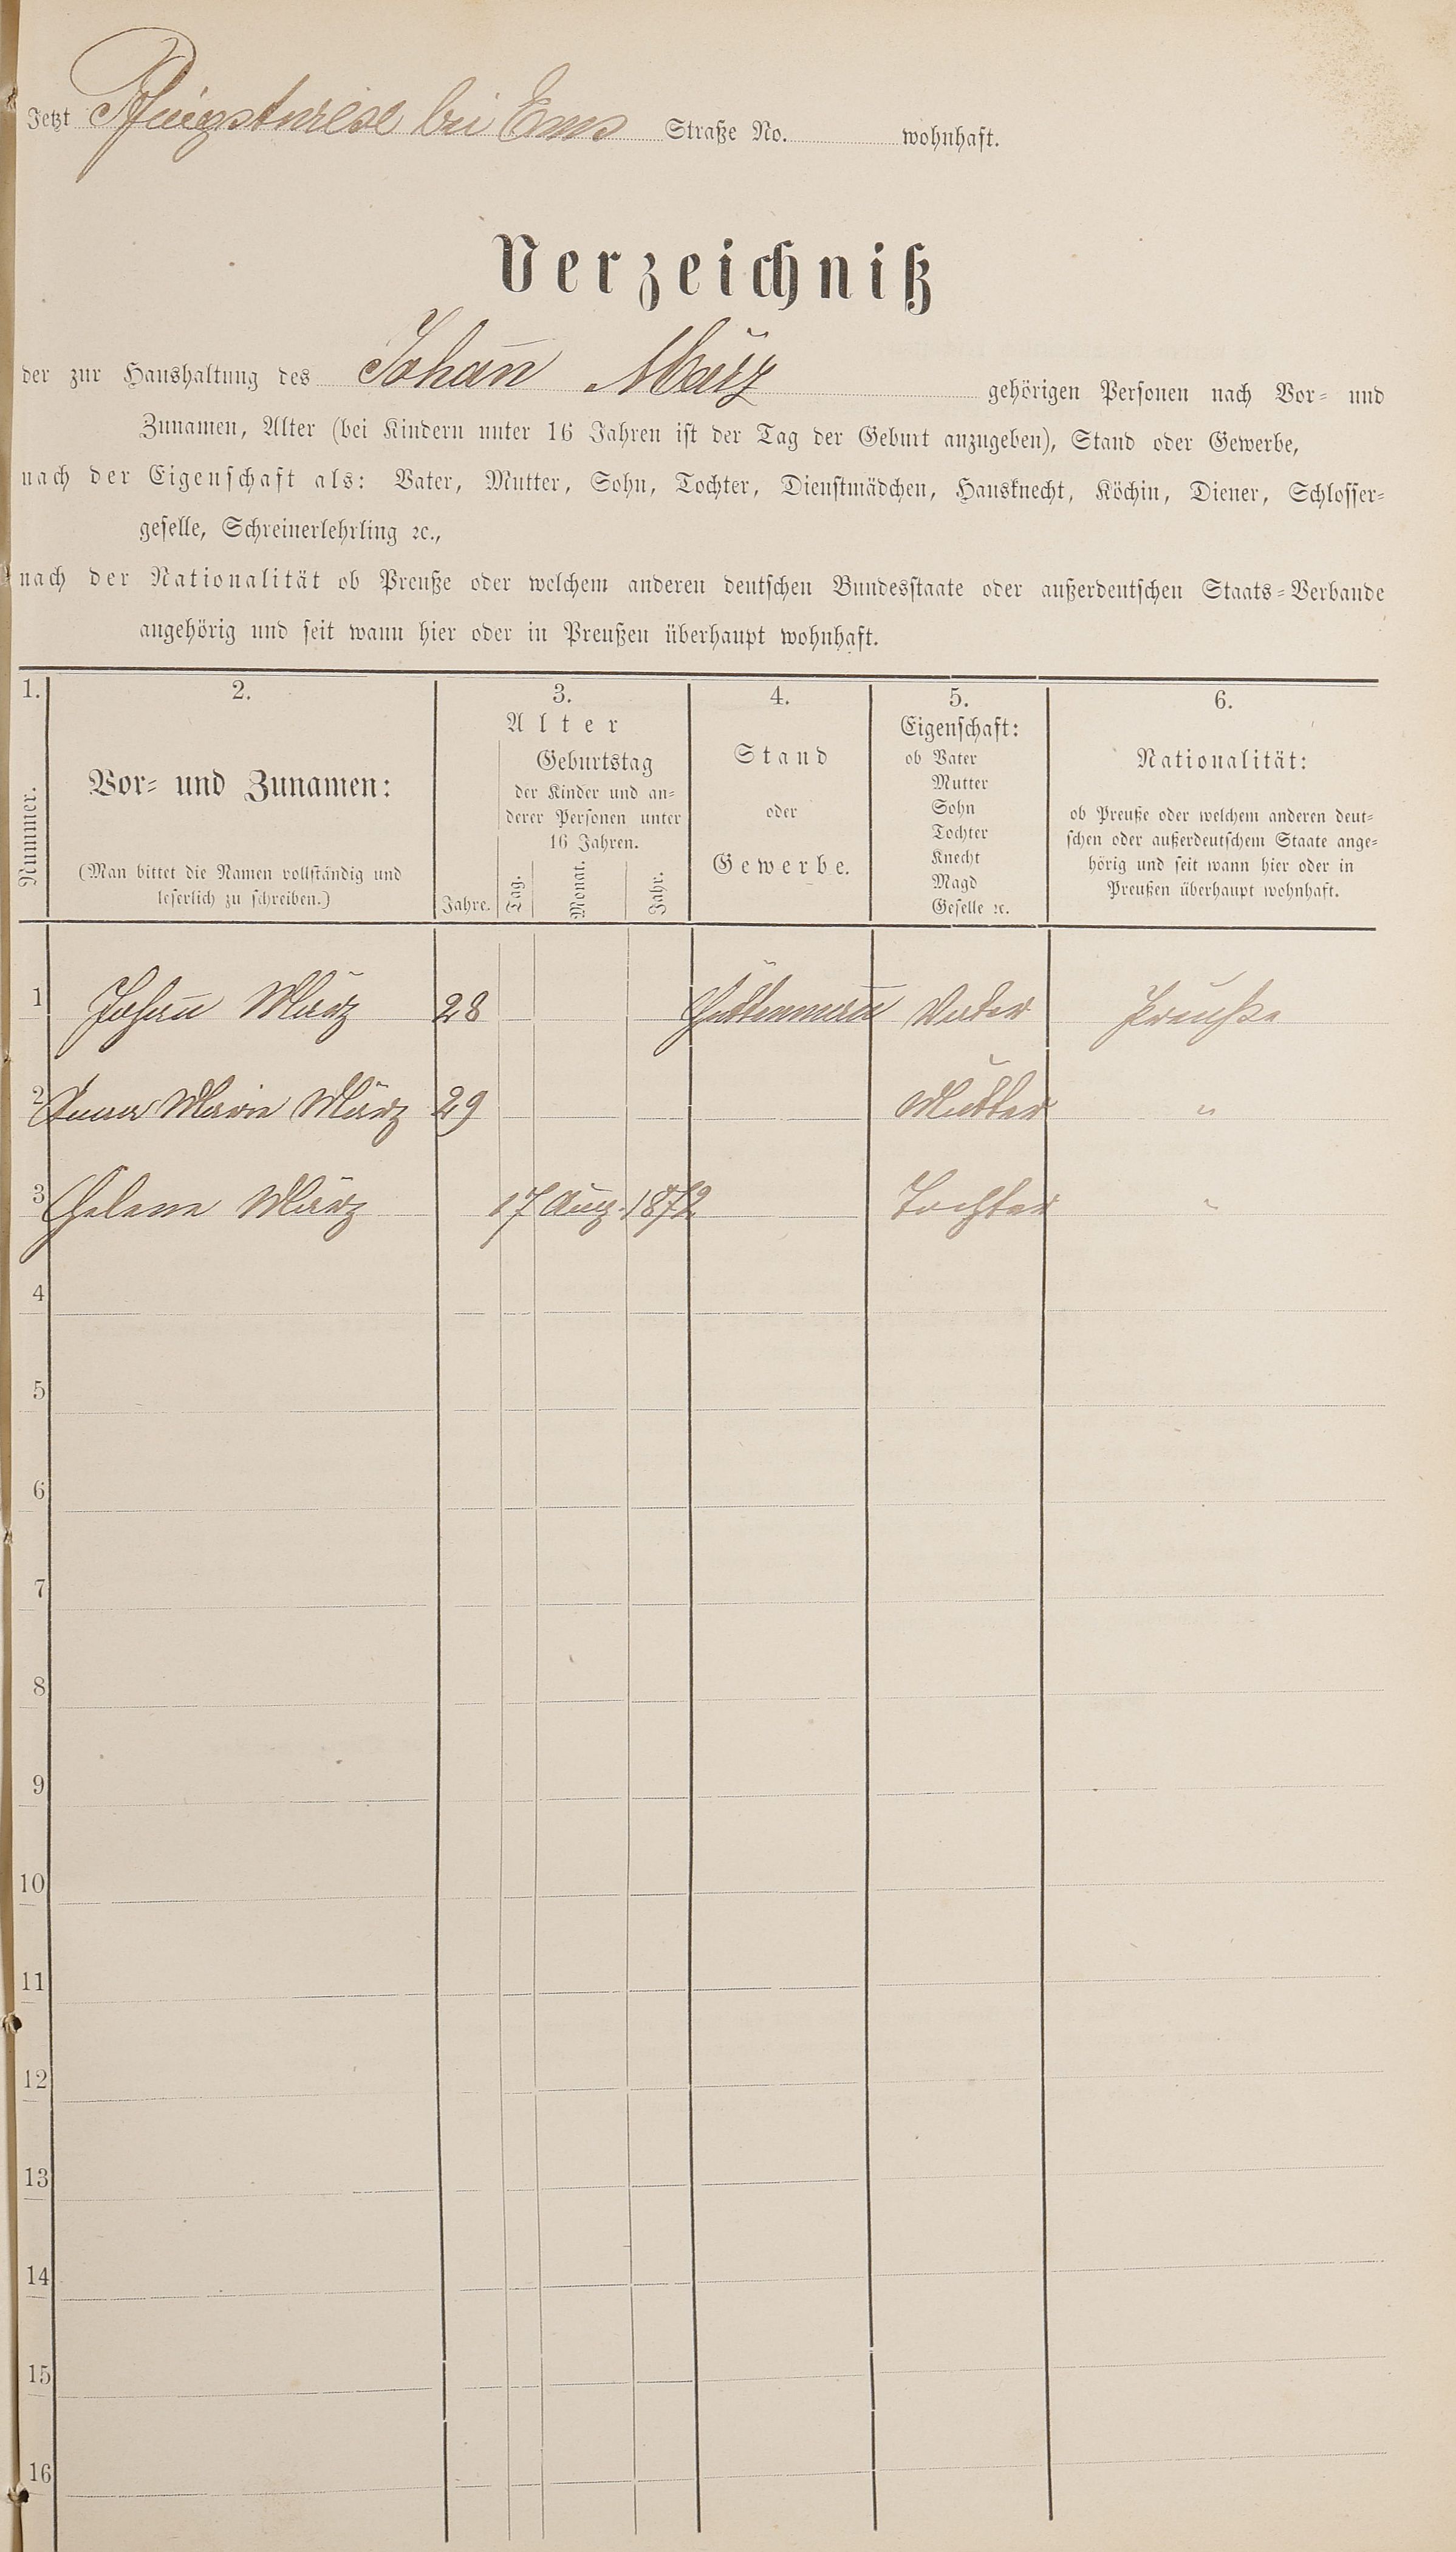 Jetzt Pfingstwiese bei Ems Straße No. wohnhaft.
Verzeichniß
der zur Haushaltung des Johan̄ März gehörigen Personen nach Vor- und
Zunamen, Alter (bei Kindern unter 16 Jahren ist der Tag der Geburt anzugeben), Stand oder Gewerbe,
nach der Eigenschaft als: Vater, Mutter, Sohn, Tochter, Dienstmädchen, Hausknecht, Köchin, Diener, Schlosser-
geselle, Schreinerlehrling ꝛc.,
nach der Nationalität ob Preuße oder welchem anderen deutschen Bundesstaate oder außerdeutschen Staats-Verbande
angehörig und seit wann hier oder in Preußen überhaupt wohnhaft.
1. 2. 3. 4. 5. 6.
Nummer.
Vor- und Zunamen:
(Man bittet die Namen vollständig und
leserlich zu schreiben.)
Alter
Jahre.
Geburtstag
der Kinder und an-
derer Personen unter
16 Jahren.
Tag. Monat. Jahr.
Stand
oder
Gewerbe.
Eigenschaft:
ob Vater
Mutter
Sohn
Tochter
Knecht
Magd
Geselle ꝛc.
Nationalität:
ob Preuße oder welchem anderen deut-
schen oder außerdeutschem Staate ange-
hörig und seit wann hier oder in
Preußen überhaupt wohnhaft.
1 Johan̄ März 28 Hüttenman̄ Vater Preuße
2 Anna Marie März 29 Mutter "
3 Helene März 17 Aug. 1872 Tochter "
4
5
6
7
8
9
10
11
12
13
14
15
16